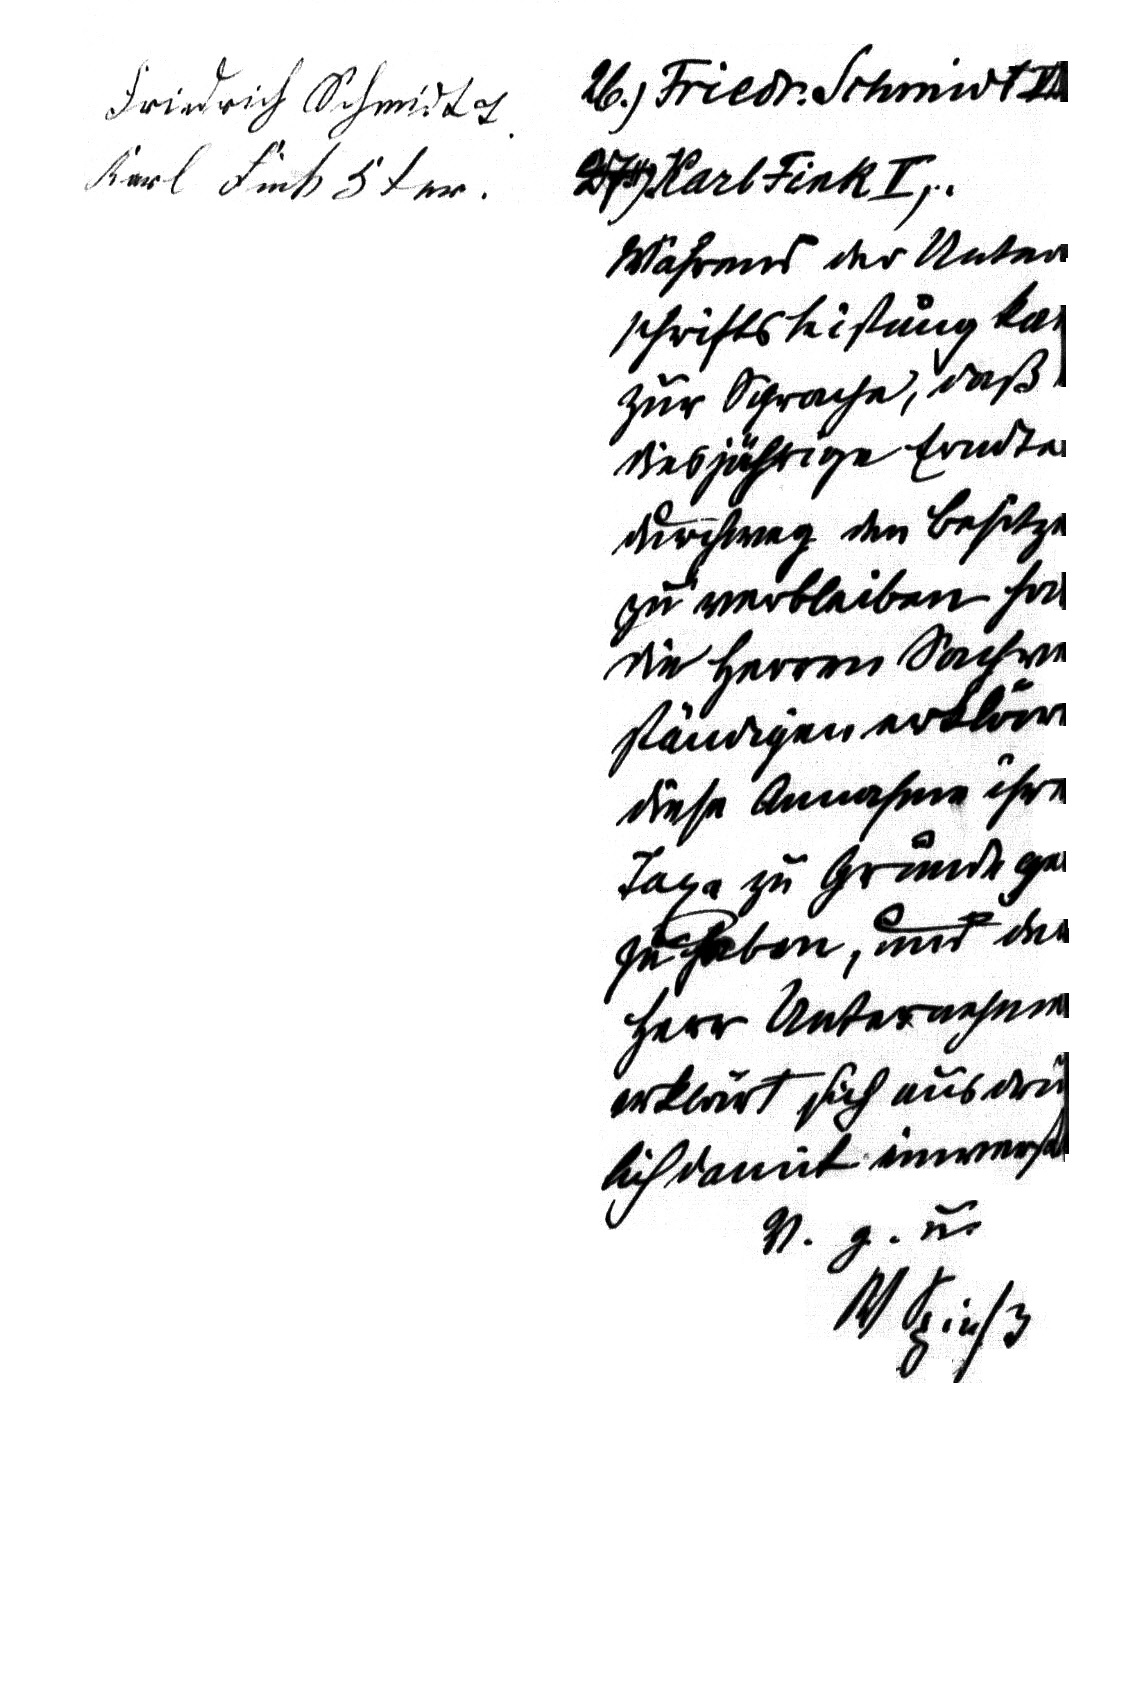 Friedrich Schmidt
Karl Fink 5ter.
26.) Friedr. Schmidt
27.) Karl Fink V,.
Während der Unter
schriftsleistung kam
zur Sprache, daß
diesjährige Erndte
durchweg den Besitze
zu verbleiben ha
die Herren Sachve
ständigen erklären
diese Annahme ihre
Taxe zu Grunde ge
zu haben, und der
Herr Unternehme
erklärt sich ausdrü
lich damit einverst
V. g. u.